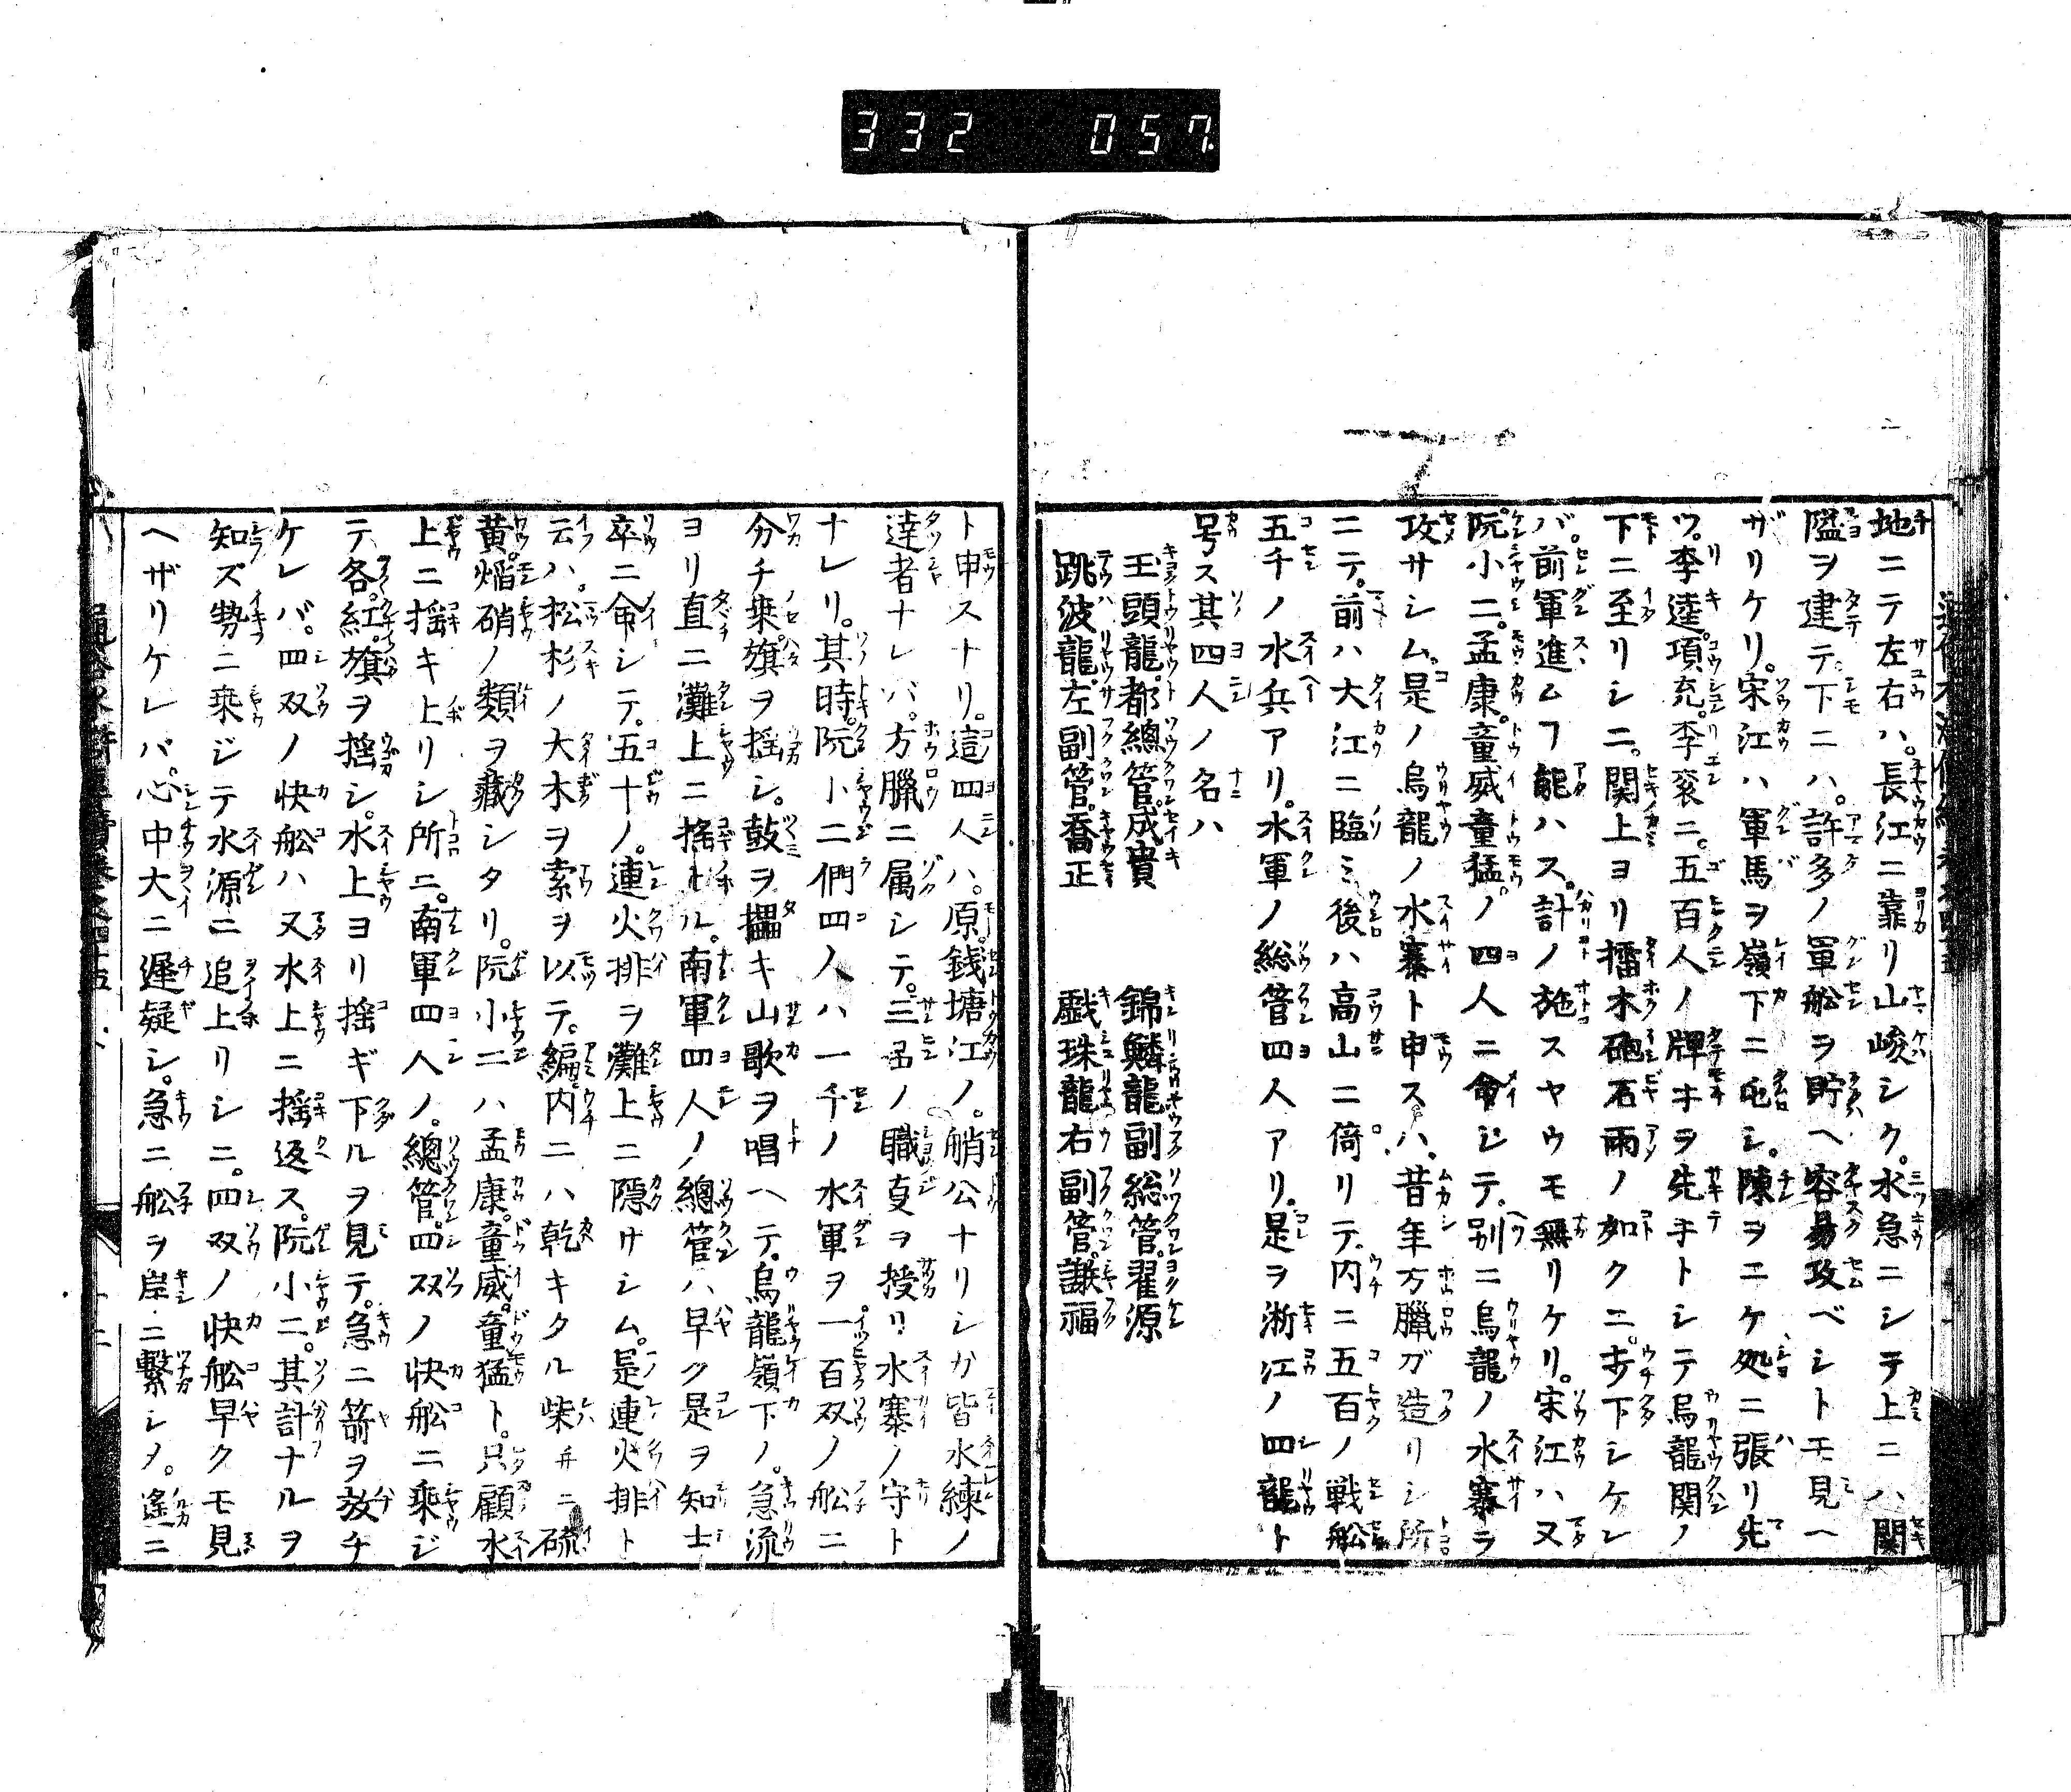 332 057
地ニテ左右ハ。長江ニ靠リ山峻シク。水急ニシテ上ニハ関
隘ヲ建テ。下ニハ。許多ノ軍船ヲ貯ヘ容易攻ベシトモ見ヘ
ザリケリ。宋江ハ軍馬ヲ嶺下ニ屯シ。陳ヲ二ケ処ニ張リ先
ヅ。李逵。項充。李袞ニ。五百人ノ牌手ヲ先手トシテ烏龍関ノ
下ニ至リシニ。関上ヨリ擂木砲石雨ノ如クニ。打下シケレ
バ。前軍進ムフ能ハス。計ノ施スヤウモ無リケリ。宋江ハ又
阮小二。孟康。童威童猛。ノ四人ニ命シテ。別ニ烏龍ノ水寨ヲ
攻サシム。是ノ烏龍ノ水寨ト申スハ。昔年方臘ガ造リシ所
ニテ。前ハ大江ニ臨ミ後ハ高山ニ倚リテ。内ニ五百ノ戦舩
五千ノ水兵アリ。水軍ノ総管四人アリ。是ヲ浙江ノ四龍ト
号ス其四人ノ名ハ
玉頭龍。都總管。成貴　錦鱗龍副総管。翟源
跳波龍。左副管。喬正　戯珠龍右副管。謝福
ト申スナリ。這四人ハ。原銭塘江ノ。艄公ナリシカ皆水練ノ
達者ナレバ。方臘ニ属シテ。三品ノ職叓ヲ授リ水寨ノ守ト
ナレリ。其時。阮小二們四人ハ一千ノ水軍ヲ一百双ノ舩ニ
分チ乗。旗ヲ揺シ。鼓ヲ擂キ山歌ヲ唱ヘテ。烏龍嶺下ノ。急流
ヨリ直ニ灘上ニ揺上ル。南軍四人ノ總管ハ早ク是ヲ知士
卒ニ命シテ。五十ノ。連火排ヲ灘上ニ隠サシム。是連火排ト
云ハ。松杉ノ大木ヲ索ヲ以テ。編。内ニハ乾キタル柴并ニ硫
黄。焔硝ノ類ヲ蔵シタリ。阮小二ハ孟康。童威。童猛ト。只顧水
上ニ揺キ上リシ所ニ。南軍四人ノ。總管。四双ノ快舩ニ乘ジ
テ各。紅。旗ヲ揺シ。水上ヨリ揺ギ下ルヲ見テ。急ニ箭ヲ放チ
ケレバ。四双ノ快舩ハ又水上ニ揺返ス。阮小二。其計ナルヲ
知ズ勢ニ乗ジテ水源ニ追上リシニ。四双ノ快舩早クモ見
ヘザリケレバ。心中大ニ遅疑シ。急ニ舩ヲ岸ニ繋シメ。遙ニ